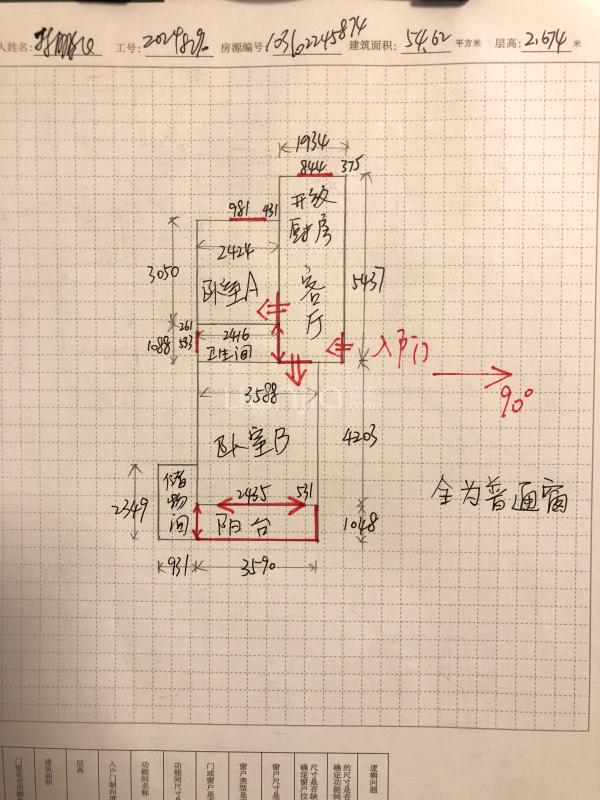 人姓名: 工号: 房源编号: 建筑面积: 54.62 平方米 层高: 2.674 米
1934
844 375
981 431
开放
厨房
2424
3050
卧室A
客厅
5437
261
2416
1088
593
卫生间
入户门
90°
3588
卧室B
4203
2349
储物间
2435 531
全为普通窗
阳台
1048
931 3590
门窗是否用颜
建筑面积
层高
入户门朝向度
功能间名称
功能间尺寸是
门或窗户是
窗户类型是
窗户尺寸是
尺寸是否缺
确定窗户位
的尺寸是否
确定功能间
逻辑问题